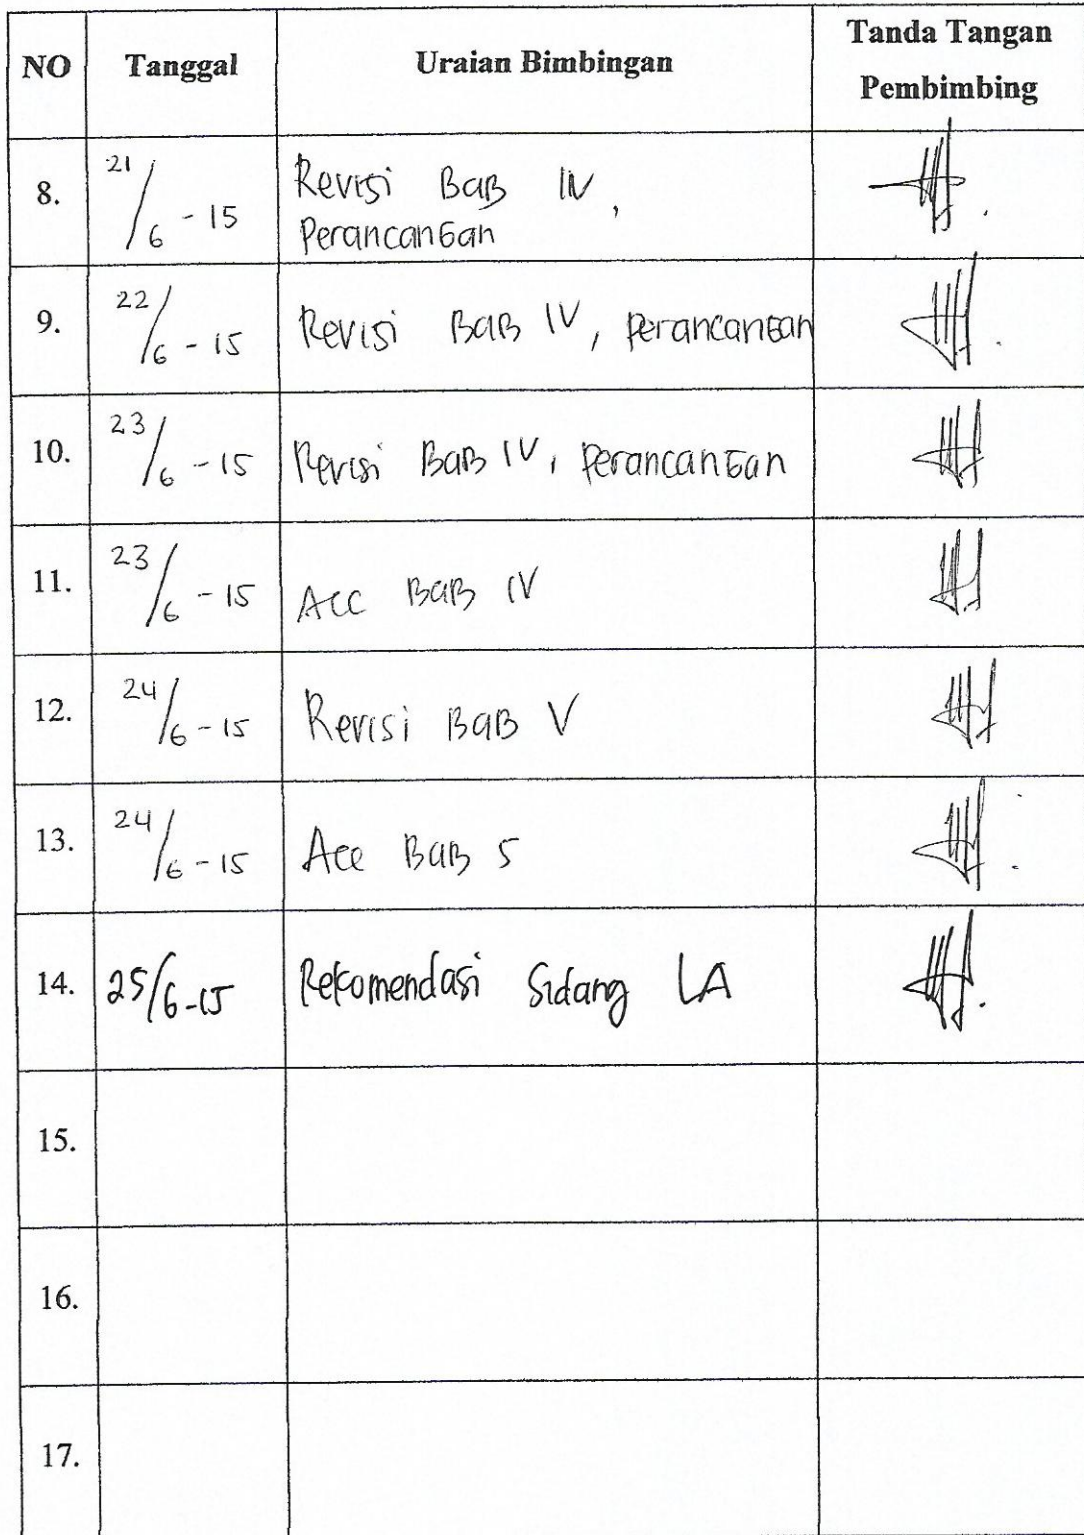 NO Tanggal Uraian Bimbingan Tanda Tangan Pembimbing
8. 21/6 - 15 Revisi BaB IV,
Perancangan
9. 22/6 - 15 Revisi BaB IV, perancangan
10. 23/6 - 15 Revisi BaB IV, perancangan
11. 23/6 - 15 Acc BaB IV
12. 24/6 - 15 Revisi BaB V
13. 24/6 - 15 Acc BaB 5
14. 25/6-15 Rekomendasi Sidang LA
15.
16.
17.